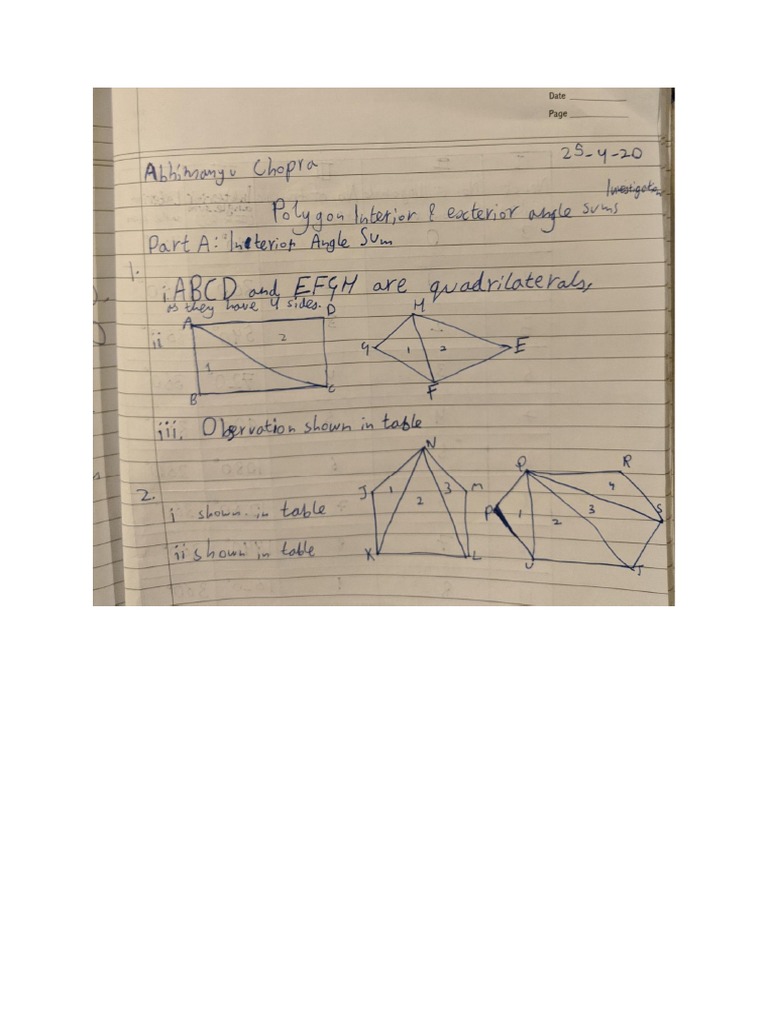 Date
Page
25-4-20
Abhimanyu Chopra
Investigation
Polygon Interior & exterior angle sums
Part A: Interior Angle Sum
1.
i ABCD and EFGH are quadrilaterals,
as they have 4 sides.
ii
A D
1 2
B C
H
G 1 2 E
F
iii. Observation shown in table
2.
i shown in table
ii shown in table
N
J 1 2 3 M
K L
Q R
4
P 1 2 3 S
U T